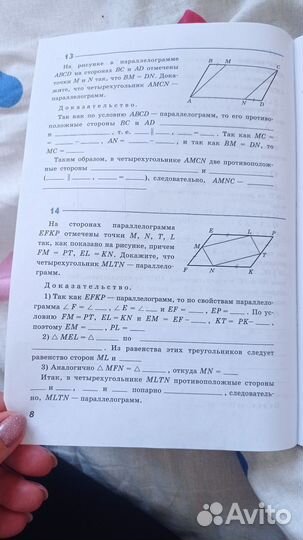 13
На рисунке в параллелограмме
ABCD на сторонах BC и AD отмечены
точки M и N так, что BM = DN. Дока-
жите, что четырехугольник AMCN —
параллелограмм.
B M C
A N D
Доказательство.
Так как по условию ABCD — параллелограмм, то его противо-
положные стороны BC и AD ____
и ____, т. е. ____ ∥ ____, ____ = ____. Так как MC =
= ____ – ____, AN = ____ – ____, и так как BM = DN, то
MC = ____
Таким образом, в четырехугольнике AMCN две противополож-
ные стороны ____ и ____
(____ ∥ ____, ____ = ____), следовательно, AMNC — ____
14
На сторонах параллелограмма
EFKP отмечены точки M, N, T, L
так, как показано на рисунке, причем
FM = PT, EL = KN. Докажите, что
четырехугольник MLTN — параллело-
грамм.
E L P
M T
F N K
Доказательство.
1) Так как EFKP — параллелограмм, то по свойствам параллело-
грамма ∠ F = ∠ ____, ∠ E = ∠ ____ и EF = ____, EP = ____. По ус-
ловию FM = PT, EL = KN и EM = EF – ____, KT = PK – ____,
поэтому EM = ____, PL = ____
2) △ MEL = △ ____ по ____
____. Из равенства этих треугольников следует
равенство сторон ML и ____
3) Аналогично △ MFN = △ ____, откуда MN = ____
Итак, в четырехугольнике MLTN противоположные стороны
____ и ____, ____ и ____ попарно ____, следователь-
но, MLTN — параллелограмм.
8
Avito